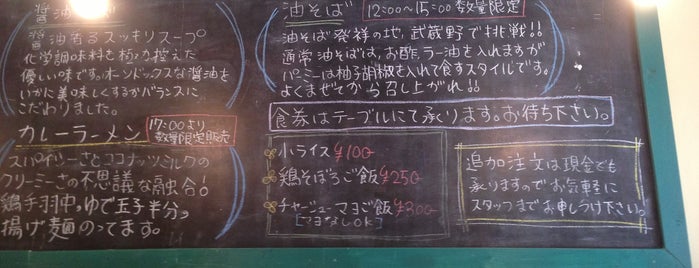 醤油
醤油香るスッキリスープ
化学調味料を極力控えた
優しい味です。オーソドックスな醤油を
いかに美味しくするかバランスに
こだわりました。
カレーラーメン 17:00より
数量限定販売
スパイシーさとココナッツミルクの
クリーミーさの不思議な融合!
鶏手羽中、ゆで玉子半分、
揚げ麺のってます。
油そば 12:00〜15:00 数量限定
油そば発祥の地、武蔵野で挑戦!!
通常油そばは、お酢、ラー油を入れますが
バーミーは柚子胡椒を入れて食すスタイルです。
よくまぜてから召し上がれ!!
食券はテーブルにて承ります。お待ち下さい。
小ライス ¥100
鶏そぼろご飯 ¥250
チャーシューマヨご飯 ¥300
[マヨなしOK]
追加注文は現金でも
承りますのでお気軽に
スタッフまでお申しつけ下さい。